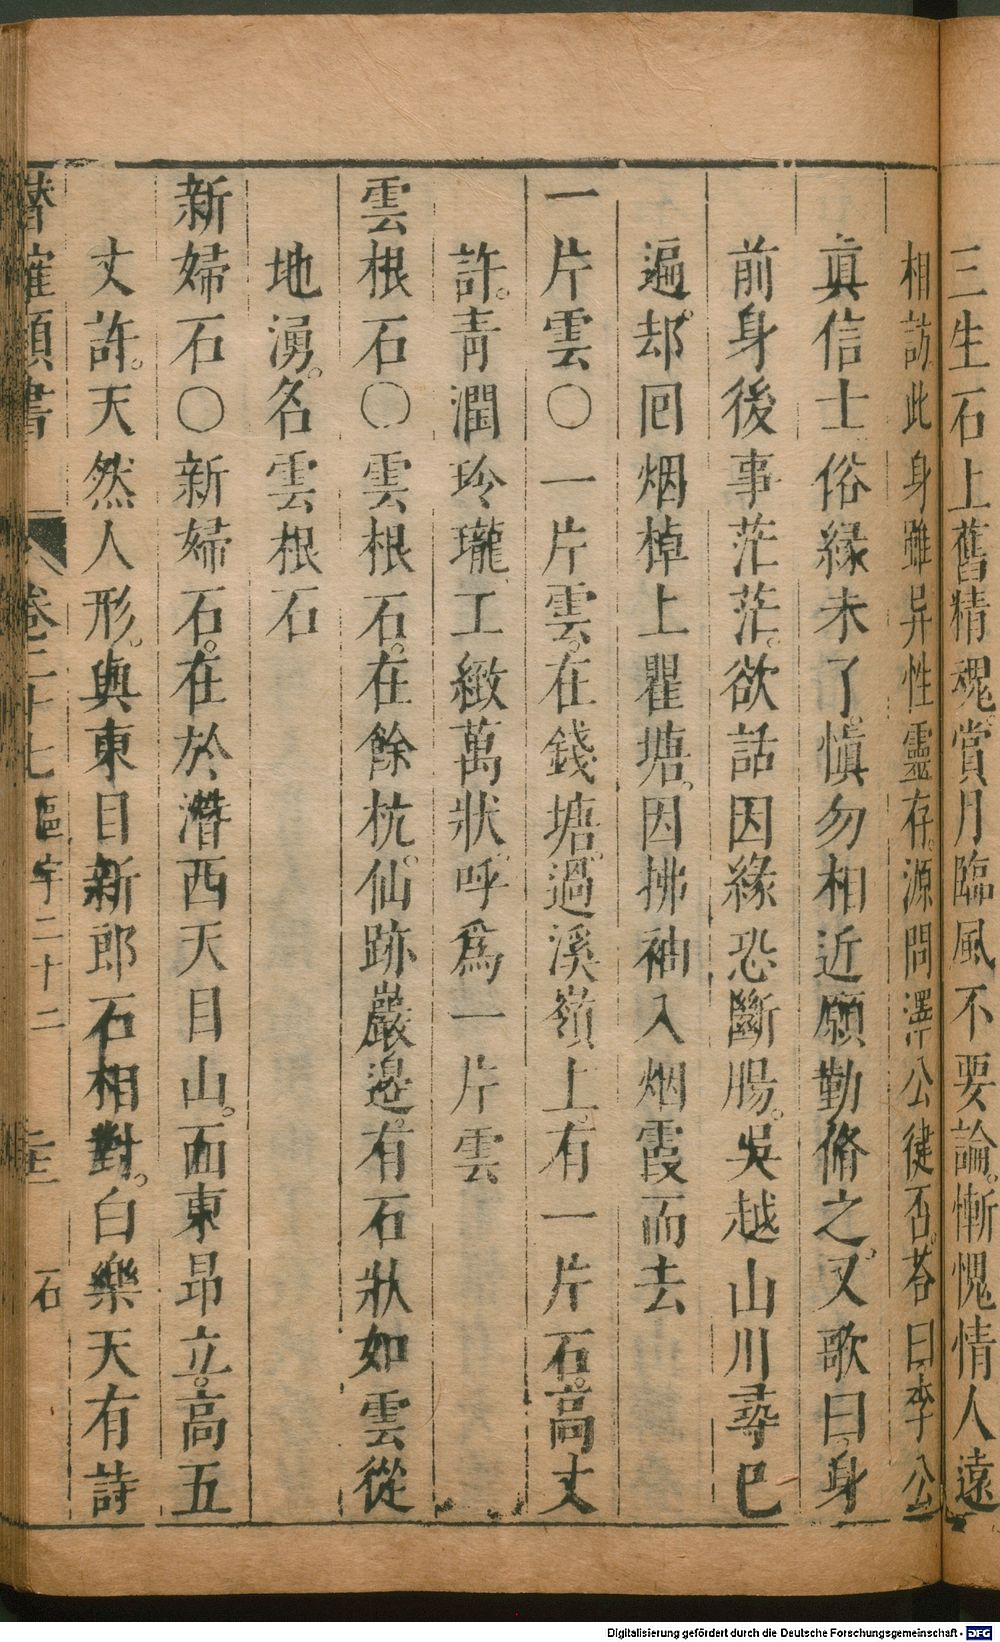 三生石上舊精魂。賞月臨風不要論。慚愧情人遠
相訪。此身雖异性靈存。源問澤公健否。荅曰。李公
真信士。俗緣未了。慎勿相近。願勤脩之。又歌曰。身
前身後事茫茫。欲話因緣恐斷腸。吳越山川尋已
遍。却囘烟棹上瞿塘。因拂袖入烟霞而去
一片雲〇一片雲。在錢塘。過溪嶺上。有一片石。高丈
許。青潤玲瓏。工緻萬狀。呼爲一片雲
雲根石〇雲根石。在餘杭。仙跡巖邉。有石狀如雲從
地湧。名雲根石
新婦石〇新婦石。在於潛西天目山。面東昂立。高五
丈許。天然人形。與東目新郎石相對。白樂天有詩
潛確類書 卷二十七 區宇二十二 石
Digitalisierung gefördert durch die Deutsche Forschungsgemeinschaft - DFG